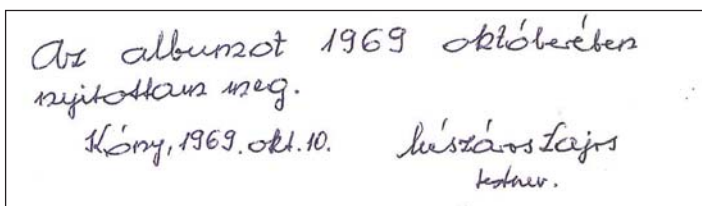 Az albumot 1969 októberében
nyitottam meg.
Kóny, 1969. okt. 10. Mészáros Lajos
testnev.